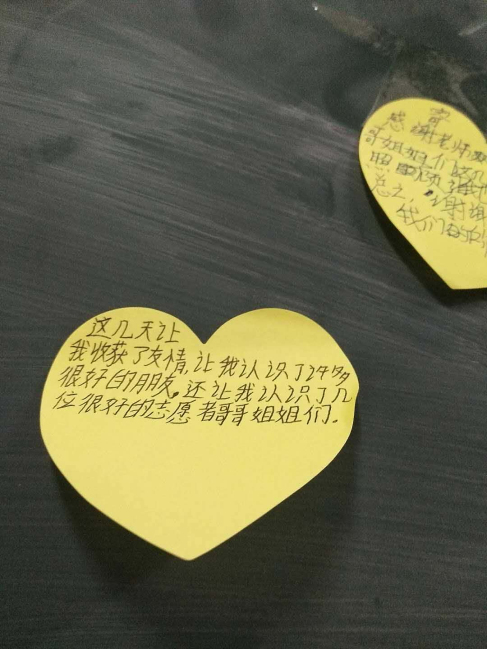 这几天让
我收获了友情,让我认识了许多
很好的朋友,还让我认识了几
位很好的志愿者哥哥姐姐们.
感谢老师
哥姐姐们这几
照顾
总之,谢谢
我们的